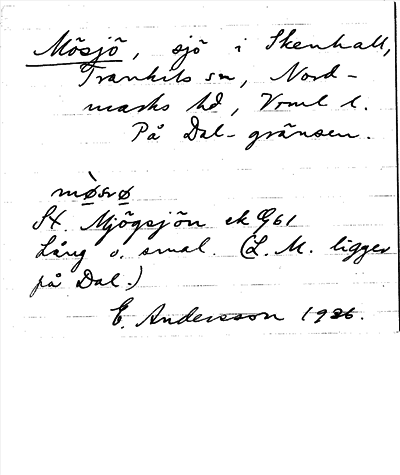 Mösjö, sjö i Skenhall,
Trankils sn, Nord-
marks hd, Vrml l.
På Dal-gränsen.
St. Mjögsjön ek G61
Lång o. smal. (L. M. ligger
på Dal.)
E. Andersson 1926.